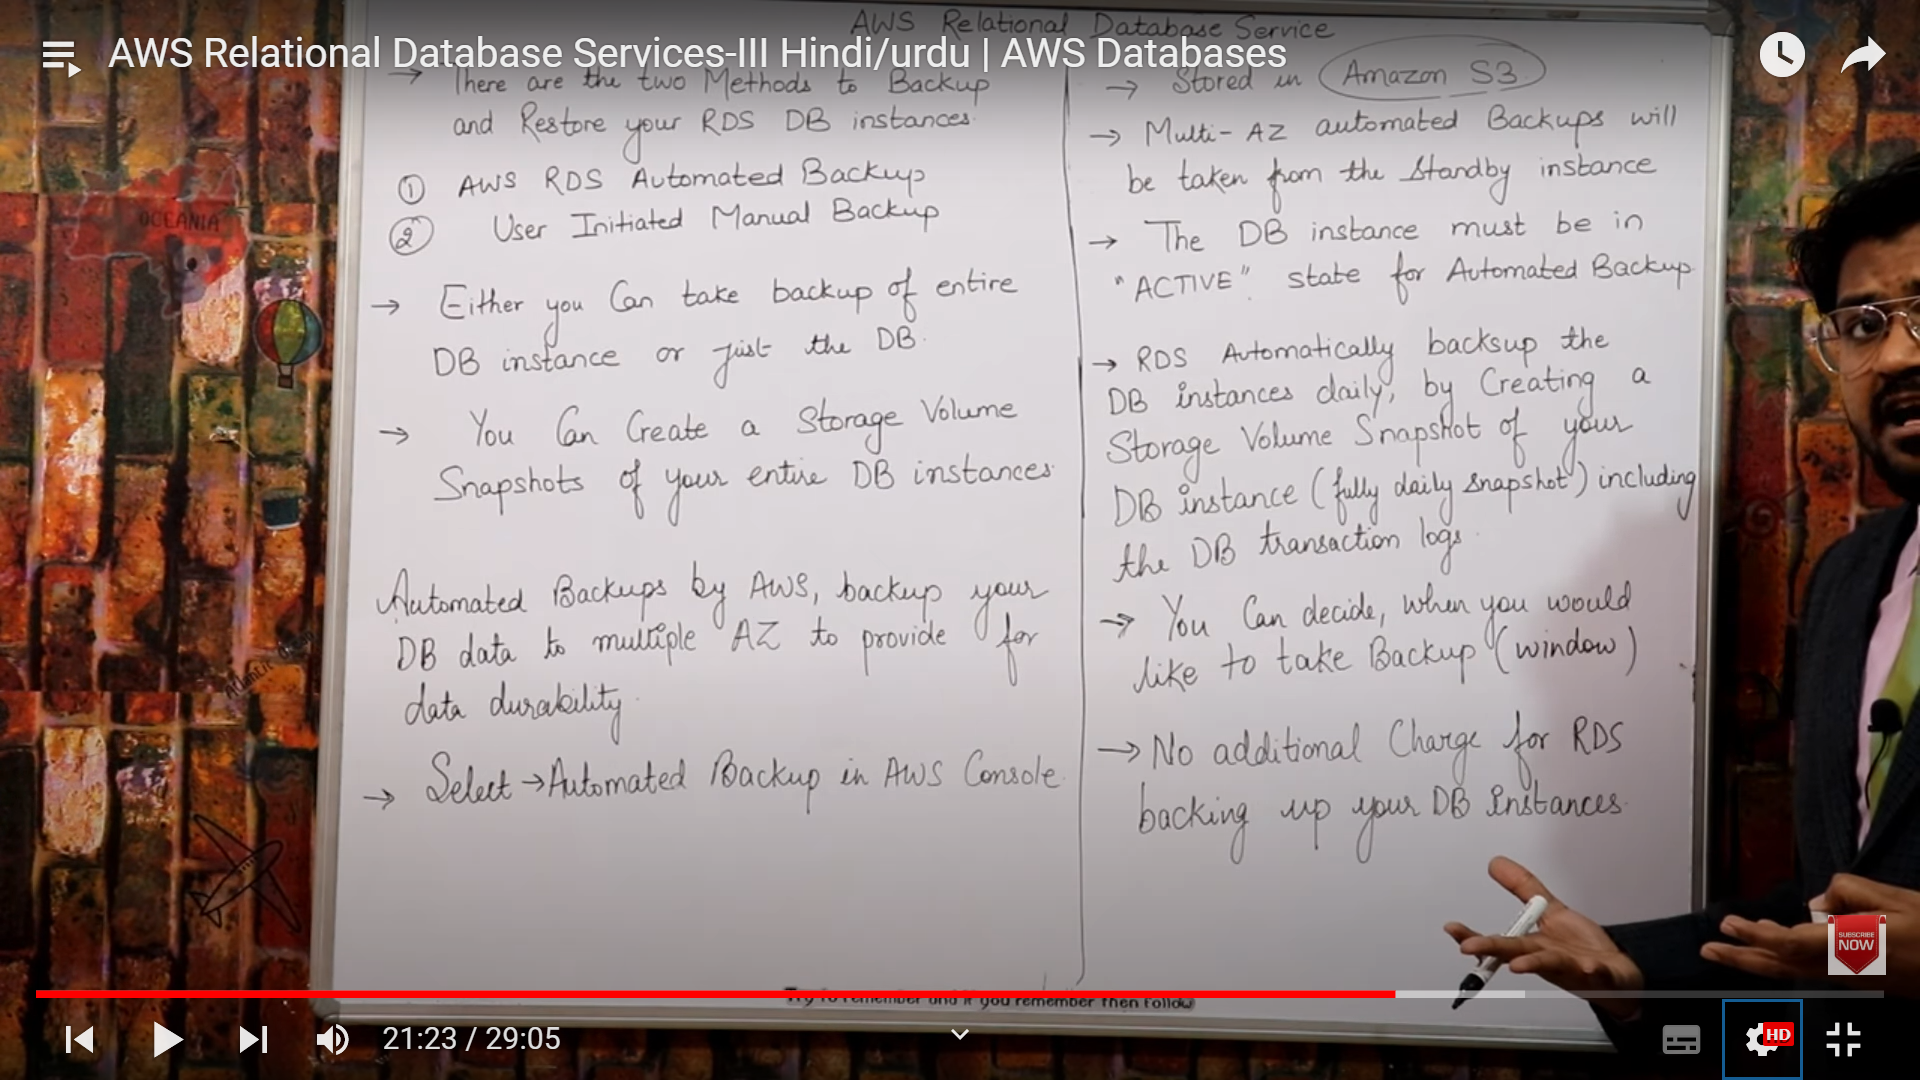 AWS Relational Database Service
AWS Relational Database Services-III Hindi/urdu | AWS Databases
→ There are the two Methods to Backup
and Restore your RDS DB instances.
① AWS RDS Automated Backup
② User Initiated Manual Backup
→ Either you Can take backup of entire
DB instance or just the DB.
→ You Can Create a Storage Volume
Snapshots of your entire DB instances
Automated Backups by AWS, backup your
DB data to multiple AZ to provide for
data durability.
→ Select → Automated Backup in AWS Console.
→ Stored in Amazon S3
→ Multi-AZ automated Backups will
be taken from the Standby instance
→ The DB instance must be in
"ACTIVE". state for Automated Backup
→ RDS Automatically backsup the
DB instances daily, by Creating a
Storage Volume Snapshot of your
DB instance (fully daily snapshot) including
the DB transaction logs.
→ You Can decide, when you would
like to take Backup (window)
→ No additional Charge for RDS
backing up your DB instances.
OCEANIA
Atlantic Ocean
SUBSCRIBE
NOW
Try to remember and if you remember then follow
21:23 / 29:05
HD